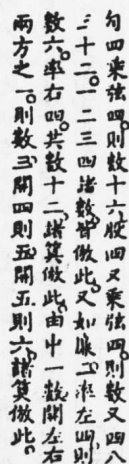 句四乘弦四。則數十六。股四又乘弦四。則數又四八
三十二。一二三四諸數皆倣此。又如廉二。準左四則
數六。率右四。共數十二。諸算倣此。由中一數開左右
兩方之一。則數三。開四則五。開五則六。諸算倣此。